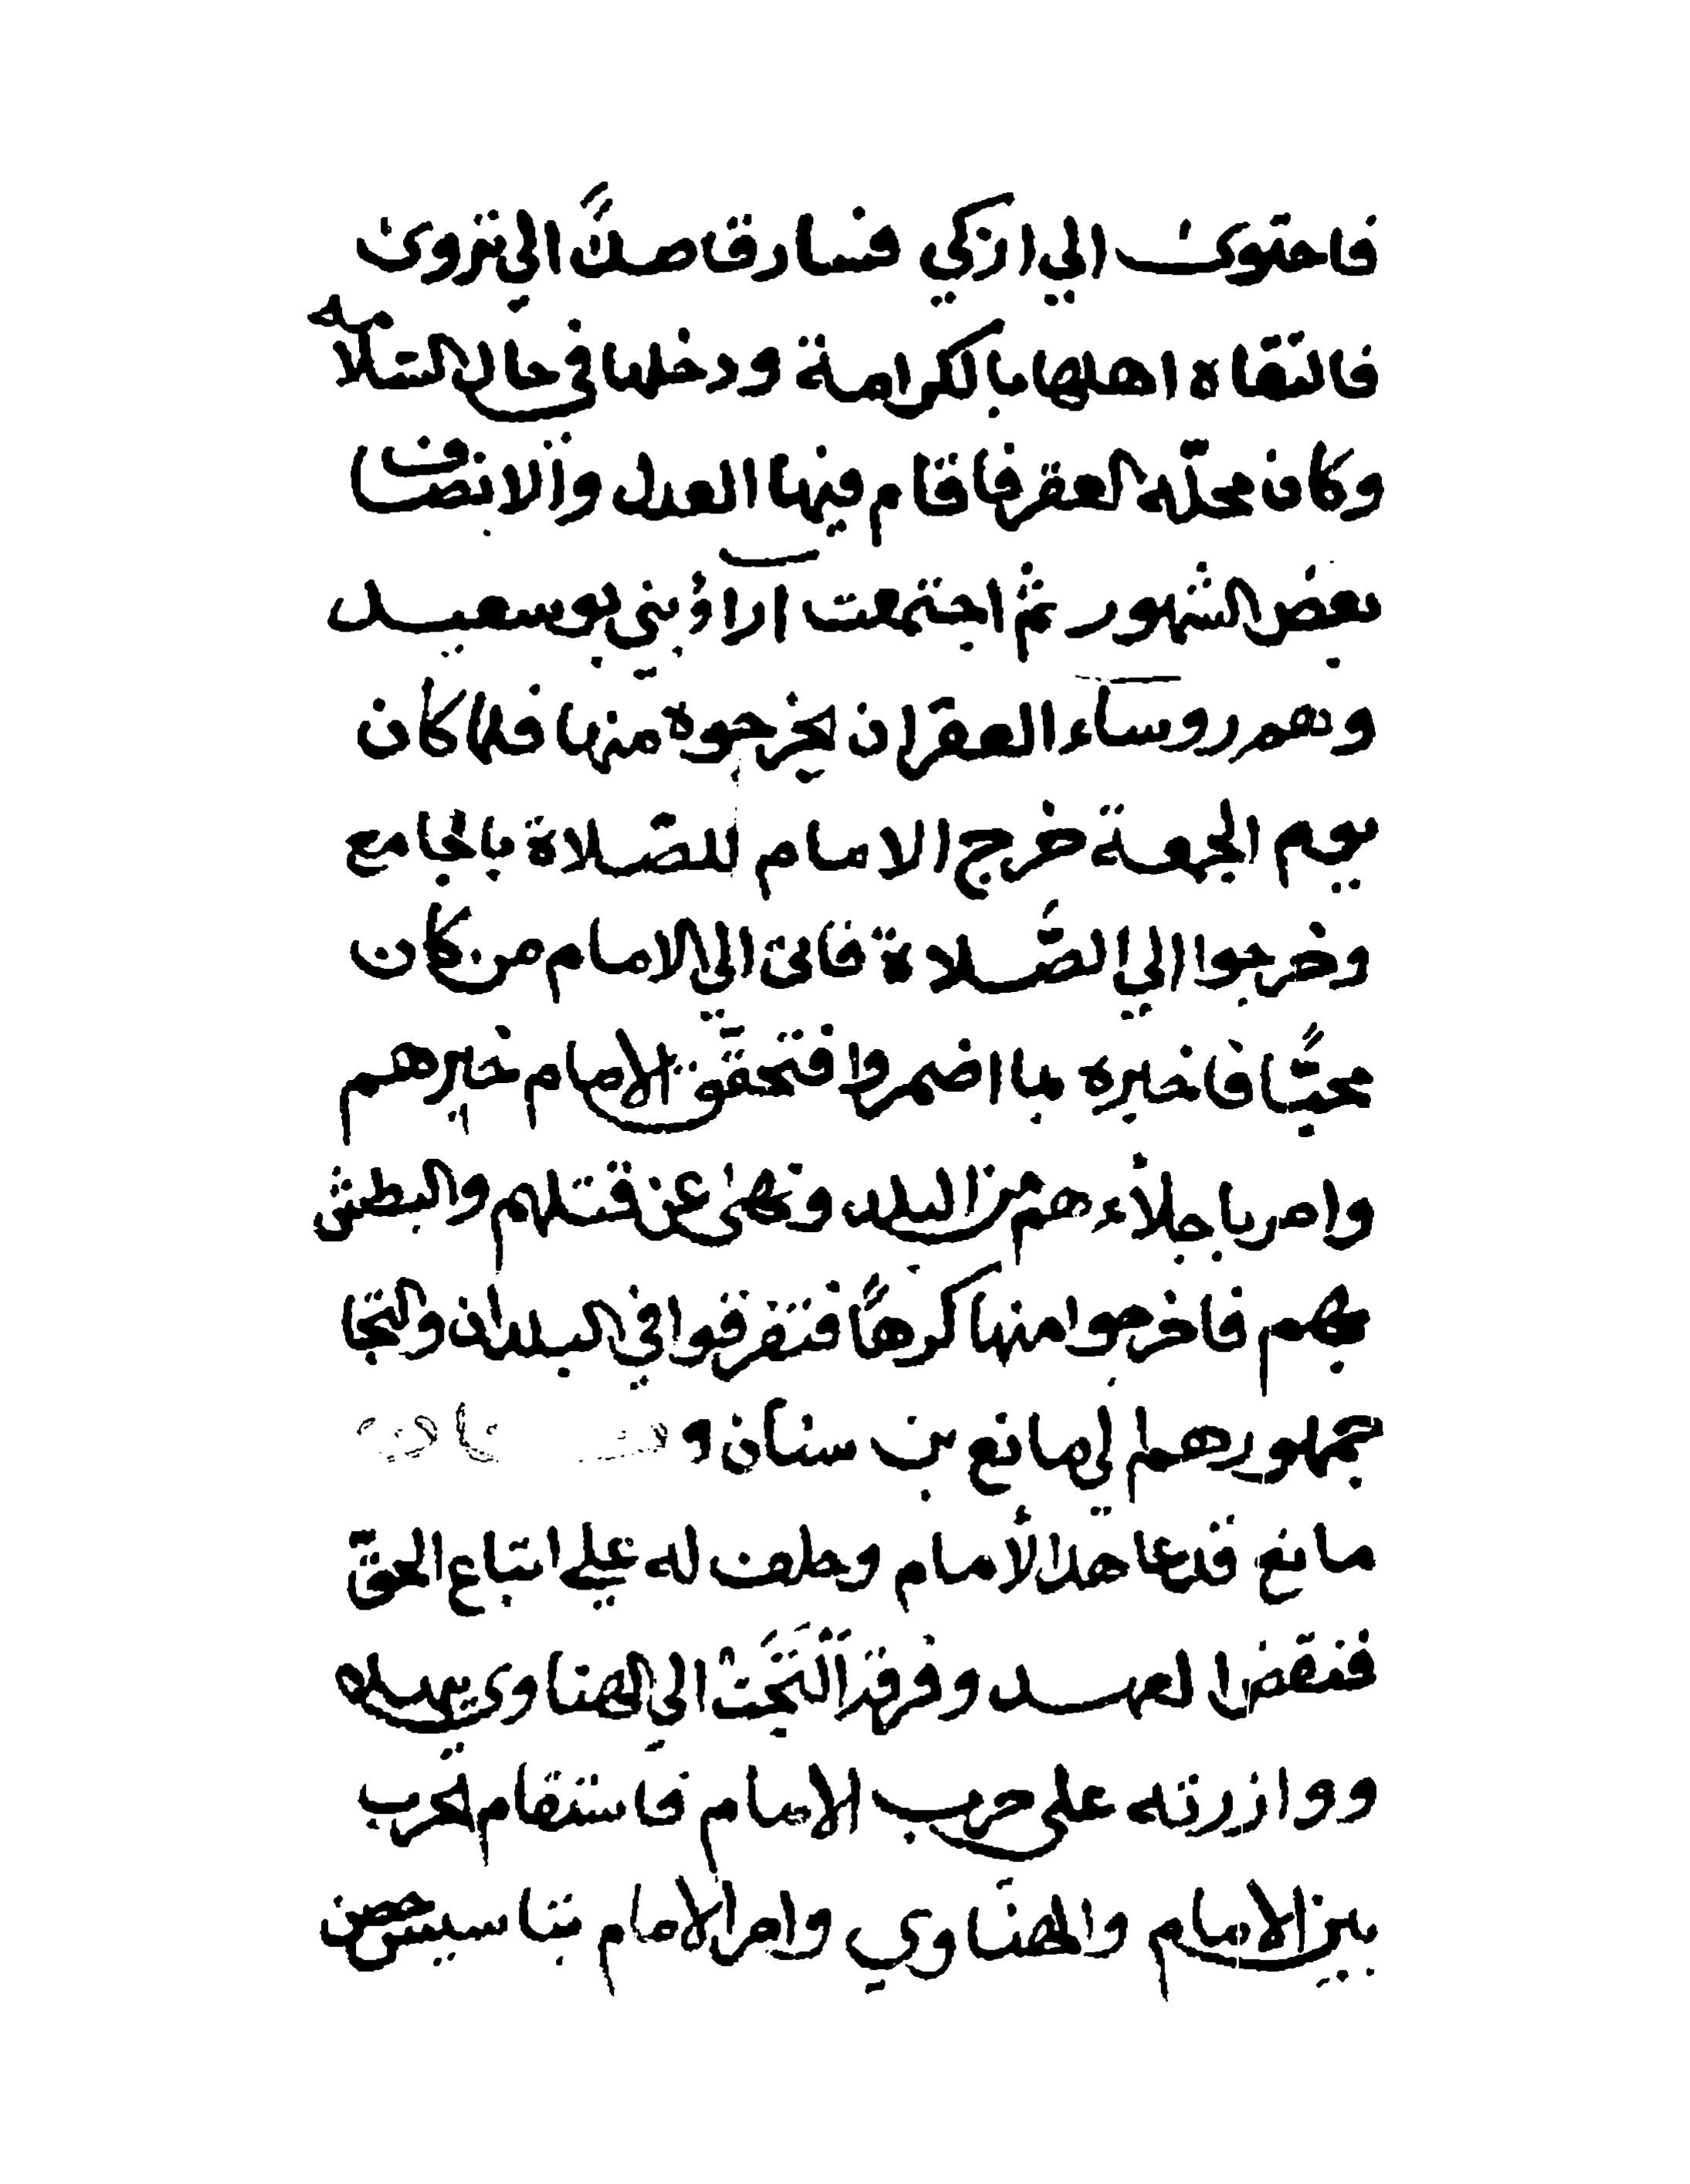 فاحتوى الي ازكي فسار قاصدًا الي نزوى
فالتقاه اهلها بالكرامة ودخلها في حال السلامه
وكان محلّه العقر فاقام فيها العدل والانصاف
بعض الشهور ثم اجتمعت آراؤ بني بوسعيد
وهم روساء العقر ان يخرجوه منها فلما كان
يوم الجمعة خرج الامام للصّلاة بالجامع
وخرجوا الي الصّلاة فاتى الي الامام من كان
محبًّا فاخبره بما اضمروا فتحقّق الامام خبرهم
وامر باجلاء هم من البلد ونهى عن قتلهم والبطش
بهم فاخرجوا منها كرهًا فتفرقوا في البلدان والتجا
جمهورهم الي مانع بن سنان و
مانع قد عاهد الأمام وحلف له علي اتباع الحقّ
فنقض العهد وفرقة التجّت الي الهناوي ببهلا
ووازرته على حرب الامام فاستقام الحرب
بين الامام والهنّاوي وامر الامام بتاسيس حصن